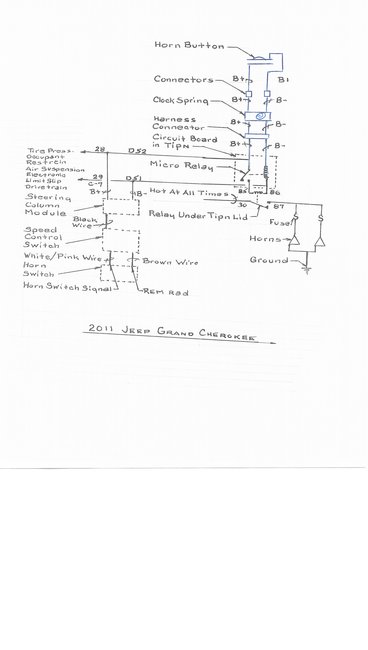 Horn Button
Connectors
B+
B1
Clock Spring
B+
B-
Harness
Connector
B+
B-
Circuit Board
in Tipn
B+
B-
Micro Relay
Tire Press-
Occupant
Restrain
Air Suspension
Electronic
Limit Slip
Drivetrain
28
D52
29
G-7
D51
B+
B-
Hot At All Times
85
86
30
87
Relay Under Tipn Lid
Steering
Column
Module
Black
Wire
Fuse
Speed
Control
Switch
Horns
White/Pink Wire
Brown Wire
Ground
Horn
Switch
Horn Switch Signal
REM Rad
2011 Jeep Grand Cherokee